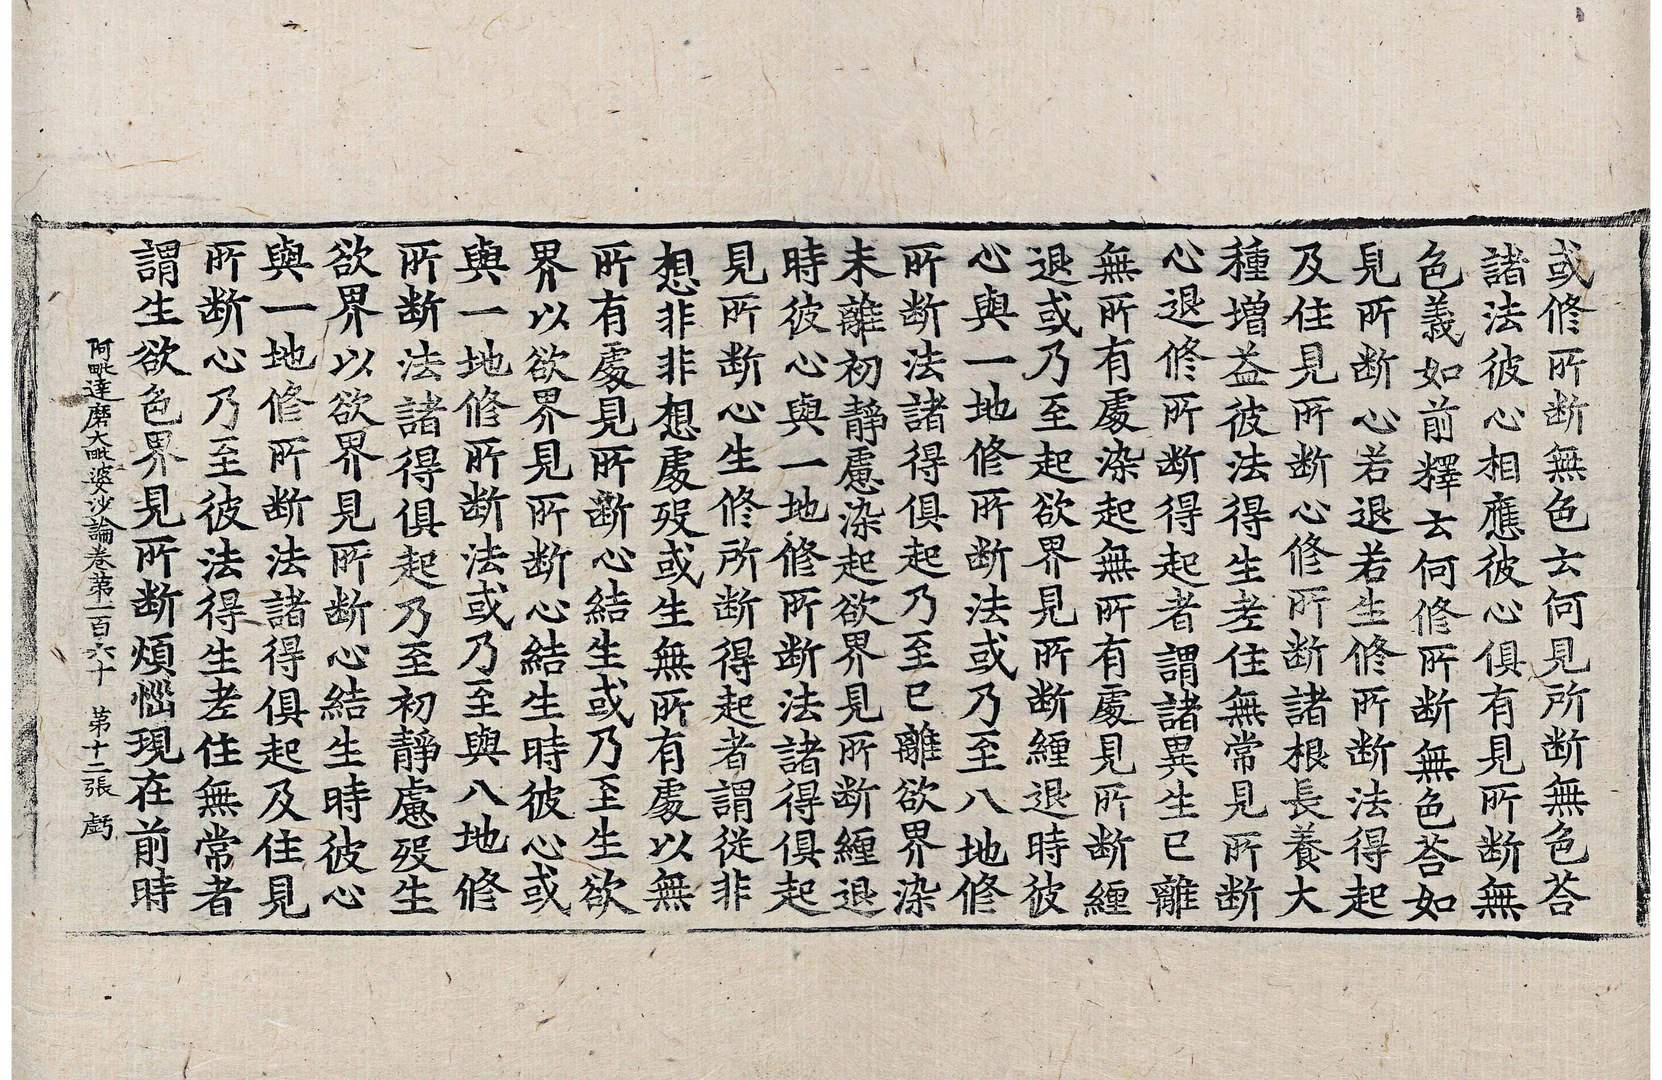 或修所断無色云何見所断無色荅
諸法彼心相應彼心俱有見所断無
色義如前釋云何修所断無色荅如
見所断心若退若生修所断法得起
及住見所断心修所断諸根長養大
種增益彼法得生老住無常見所断
心退修所断得起者謂諸異生已離
無所有處染起無所有處見所断纏
退或乃至起欲界見所断纏退時彼
心與一地修所断法或乃至八地修
所断法諸得俱起乃至已離欲界染
未離初靜慮染起欲界見所断纏退
時彼心與一地修所断法諸得俱起
見所断心生修所断得起者謂從非
想非非想處歿或生無所有處以無
所有處見所断心結生或乃至生欲
界以欲界見所断心結生時彼心或
與一地修所断法或乃至與八地修
所断法諸得俱起乃至初靜慮歿生
欲界以欲界見所断心結生時彼心
與一地修所断法諸得俱起及住見
所断心乃至彼法得生老住無常者
謂生欲色界見所断煩惱現在前時
阿毗達磨大毗婆沙論卷第一百六十 第十二張